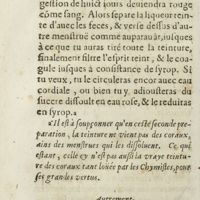 gestion de huict jours deuiendra rouge
cõme sang. Alors separe la liqueur tein-
te d'auec les feces, & verse dessus d'au-
tre menstruë comme auparauãt, jusques
à ce que tu auras tiré toute la teinture,
finalement filtre l'esprit teint, & le coa-
gule iusques à consistance de syrop. Si
tu veux, tu le circuleras encor auec eau
cordiale, ou bien tu y, adiousteras du
succre dissoult en eau rose, & le reduiras
en syrop.
Il est à soupçonner qu'en ceste seconde pre-
paration, la teinture ne vient pas des coraux,
ains des menstrues qui les dissoluent. Ce qui
estant, celle cy n'est pas aussi la vraye teintu-
re des coraux tant louée par les Chymistes, pour
ses grandes vertus.
Autrement.